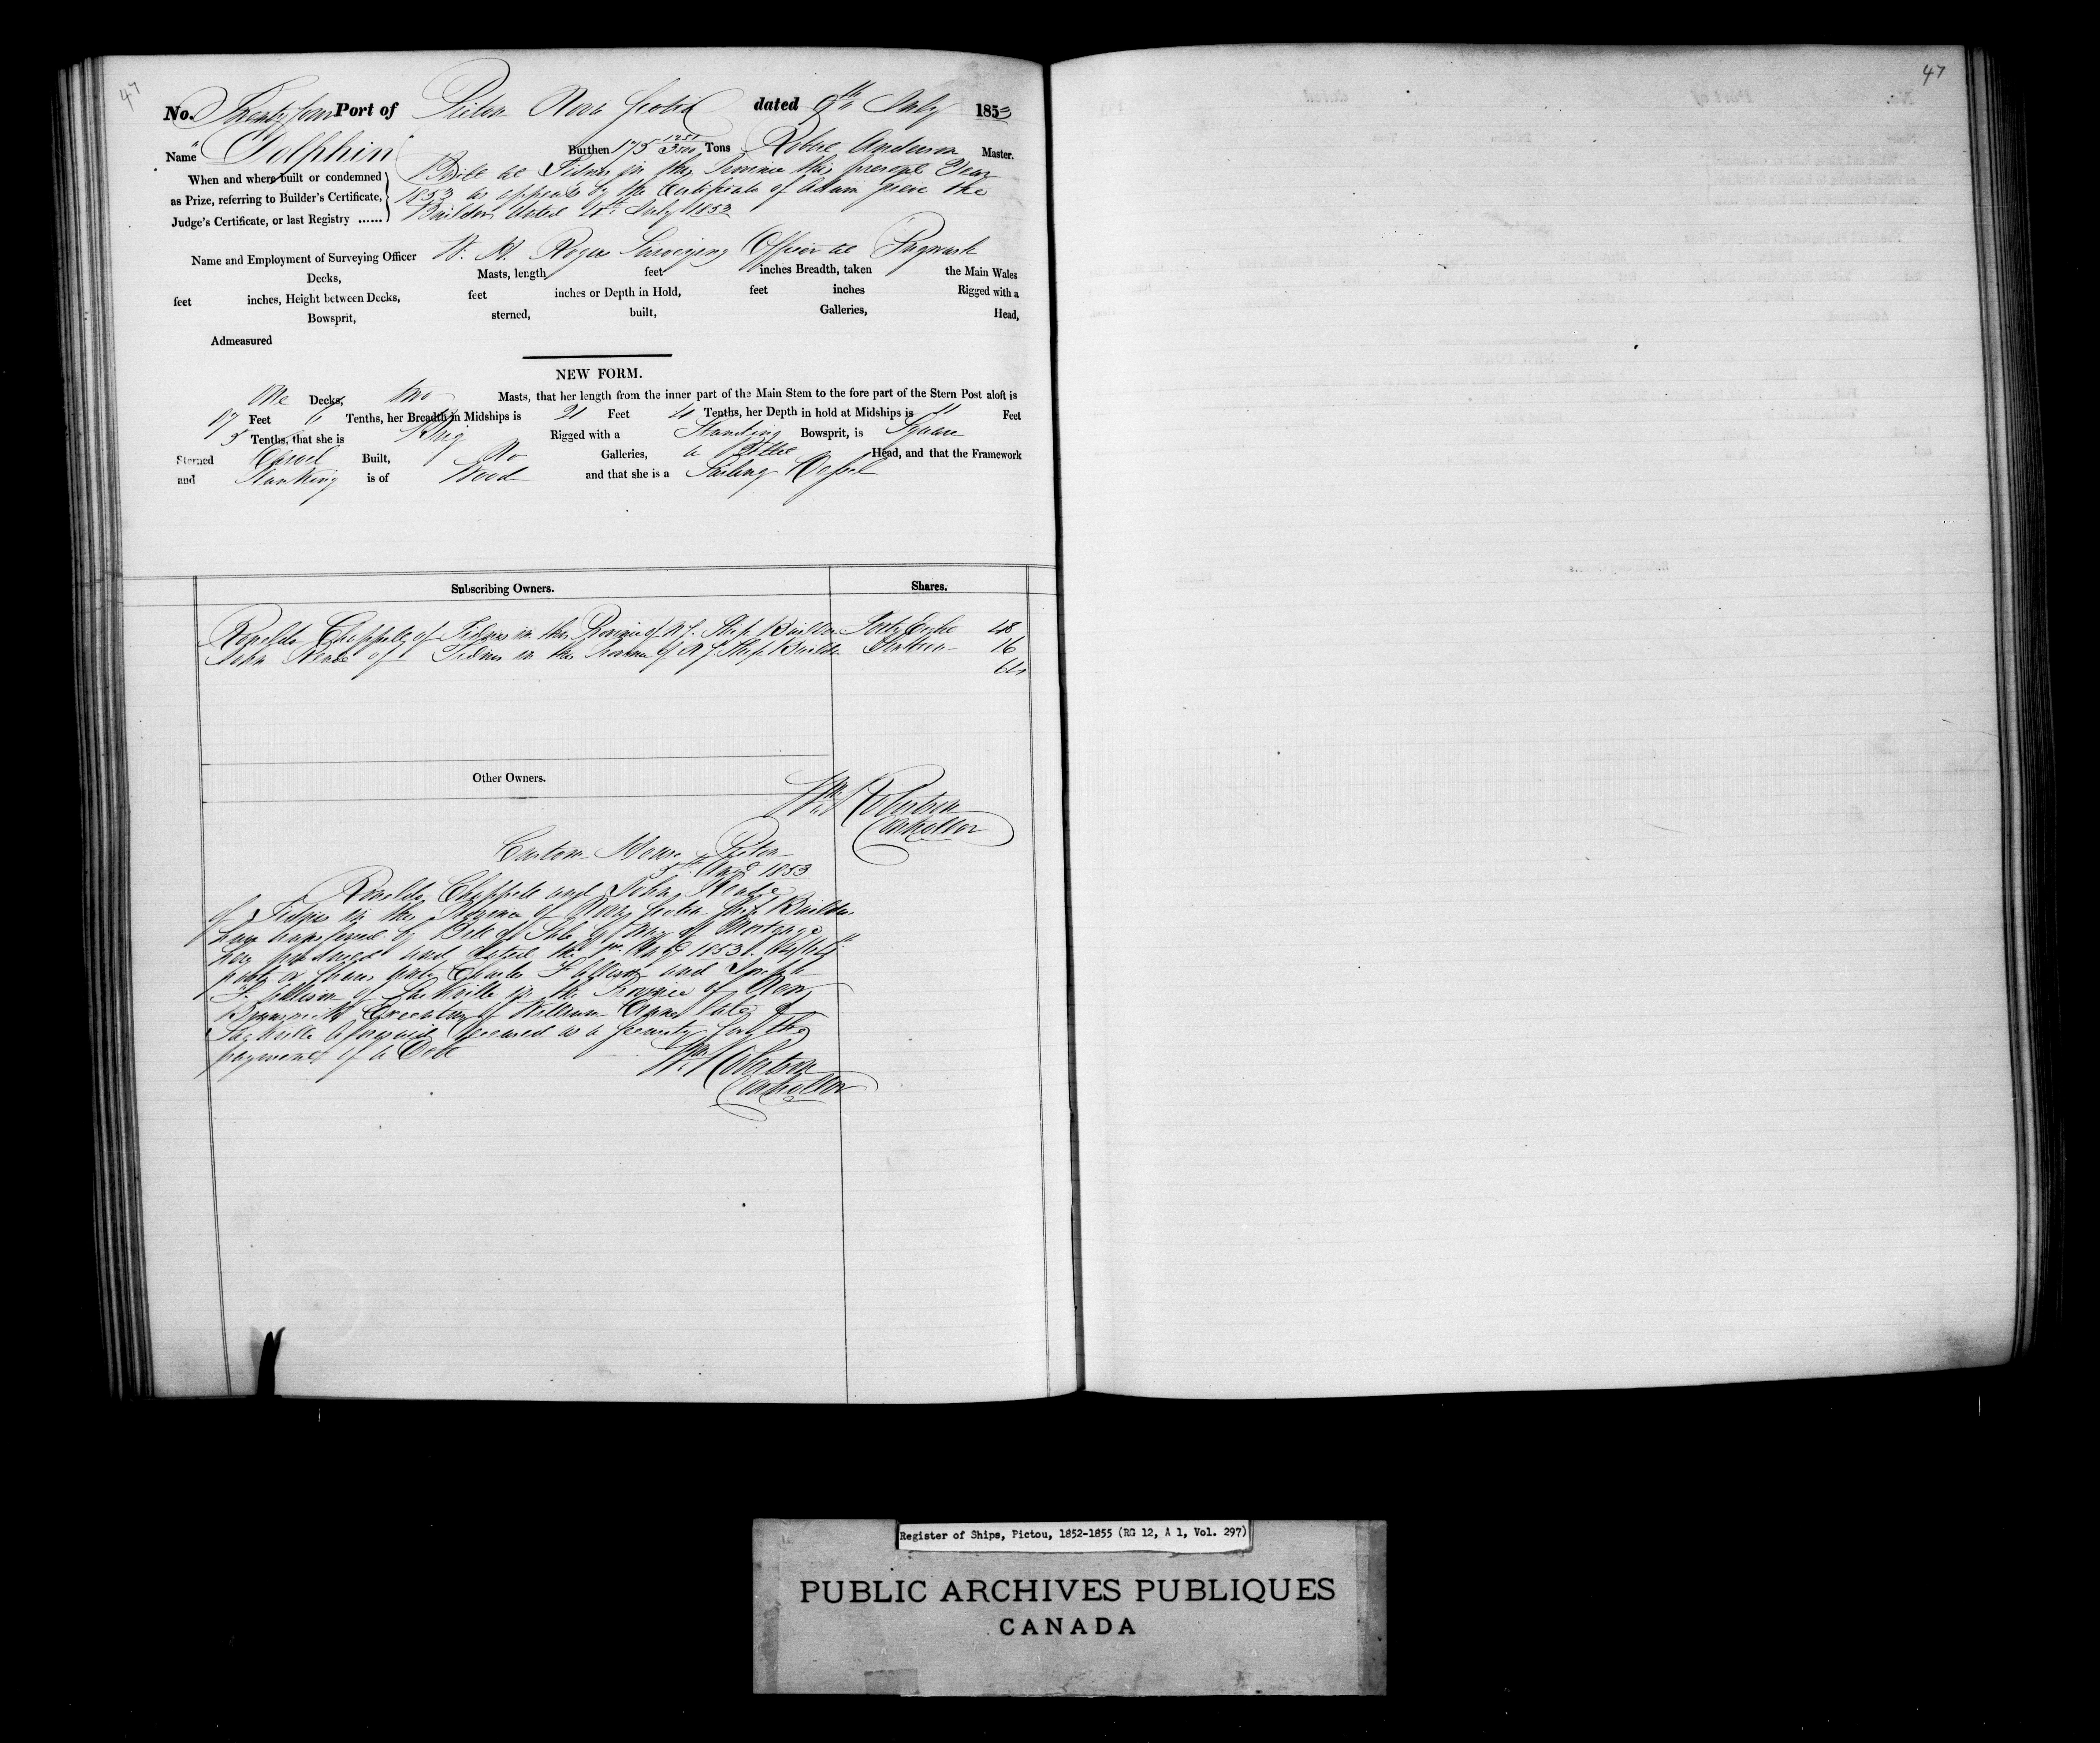 47
47
No. Twenty four Port of Pictou Nova Scotia dated 9th July 1853
Name "Dolphin" Burthen 175 1251/3500 Tons Robert Anderson Master.
When and where built or condemned
as Prize, referring to Builder's Certificate,
Judge's Certificate, or last Registry ......
Built at Tidnish in this Province this present Year
1853 as appears by the Certificate of the
Builder dated July 1853
Name and Employment of Surveying Officer W. H. Rogers Surveying Officer at Pugwash
Decks, Masts, length feet inches Breadth, taken the Main Wales
feet inches, Height between Decks, feet inches or Depth in Hold, feet inches Rigged with a
Bowsprit, sterned, built, Galleries, Head,
Admeasured
NEW FORM.
One Decks, two Masts, that her length from the inner part of the Main Stem to the fore part of the Stern Post aloft is
97 Feet 6 Tenths, her Breadth in Midships is 21 Feet 4 Tenths, her Depth in hold at Midships is 11 Feet
5 Tenths, that she is Brig Rigged with a Standing Bowsprit, is Square
Sterned Carvel Built, No Galleries, a Billet Head, and that the Framework
and Planking is of Wood and that she is a Sailing Vessel
Subscribing Owners. Shares.
Chappell of Tidnish in the Province of N.S. Ship Builder Forty Eight 48
John of Tidnish in the Province of N.S. Ship Builder Sixteen 16
64
Other Owners.
Wm Robertson
Controller
Custom House Pictou
5th Augt 1853
Chappell and John
of Tidnish in the Province of Nova Scotia Ship Builders
have transferred by Bill of Sale by way of Mortgage
and dated the Augt 1853. 64/64th
parts or shares unto Charles F Allison and Joseph
F. Allison of Sackville in the Province of New
Brunswick Executors of William Crane late of
Sackville aforesaid deceased as a security for the
payment of a Debt
Wm Robertson
Controller
Register of Ships, Pictou, 1852-1855 (RG 12, A 1, Vol. 297)
PUBLIC ARCHIVES PUBLIQUES
CANADA